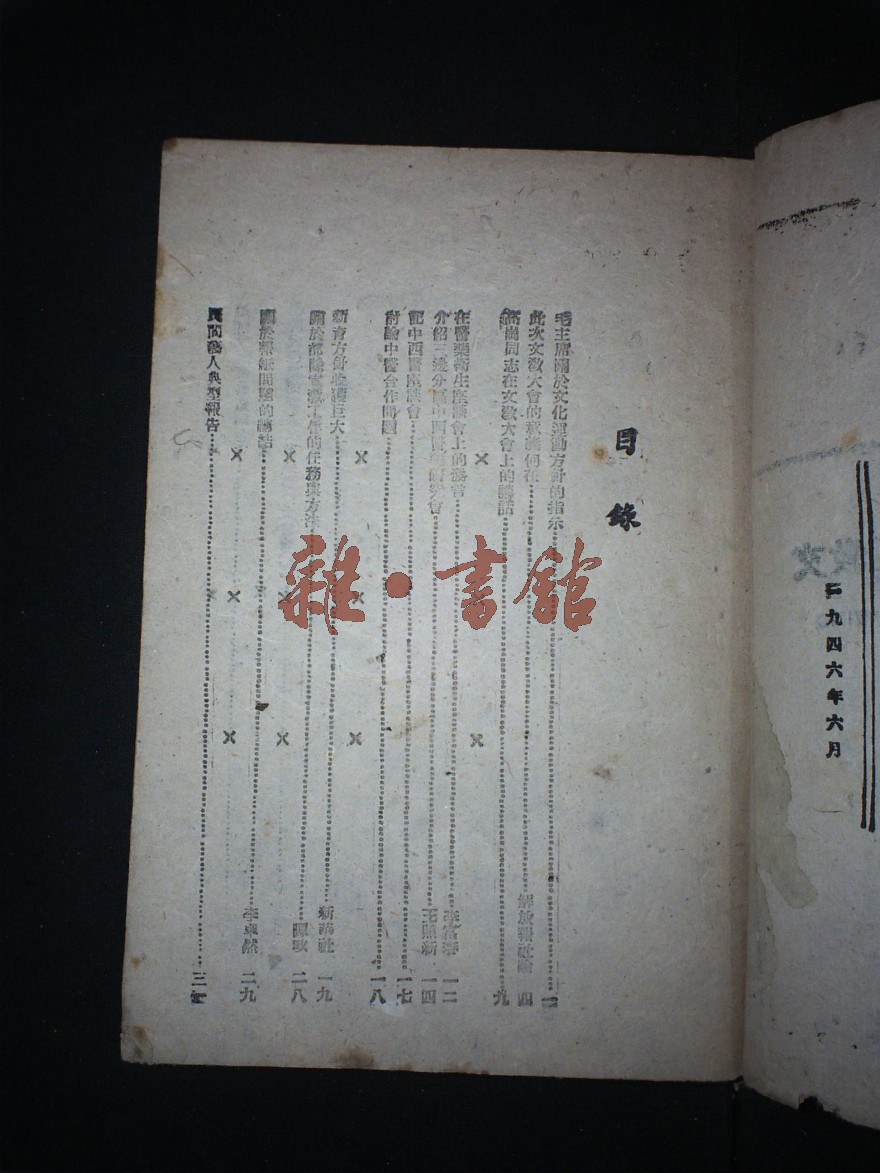 一九四六年六月
目錄
毛主席關於文化運動方針的指示 一
此次文敎大會的意義何在 解放報社論 四
高崗同志在文敎大會上的講話 九
× ×
在醫藥衛生座談會上的 李富春 一二
介紹三邊分區中西醫 會 王照新 一四
記中西醫座談會 一七
討論中醫合作問題 一八
× × ×
新育方針收穫巨大 新華社 一九
關於部隊 工作的任務與方法 二八
× × ×
關於報紙問題的講話 李卓然 二九
× × ×
民間藝人典型報告 三
雜·書館